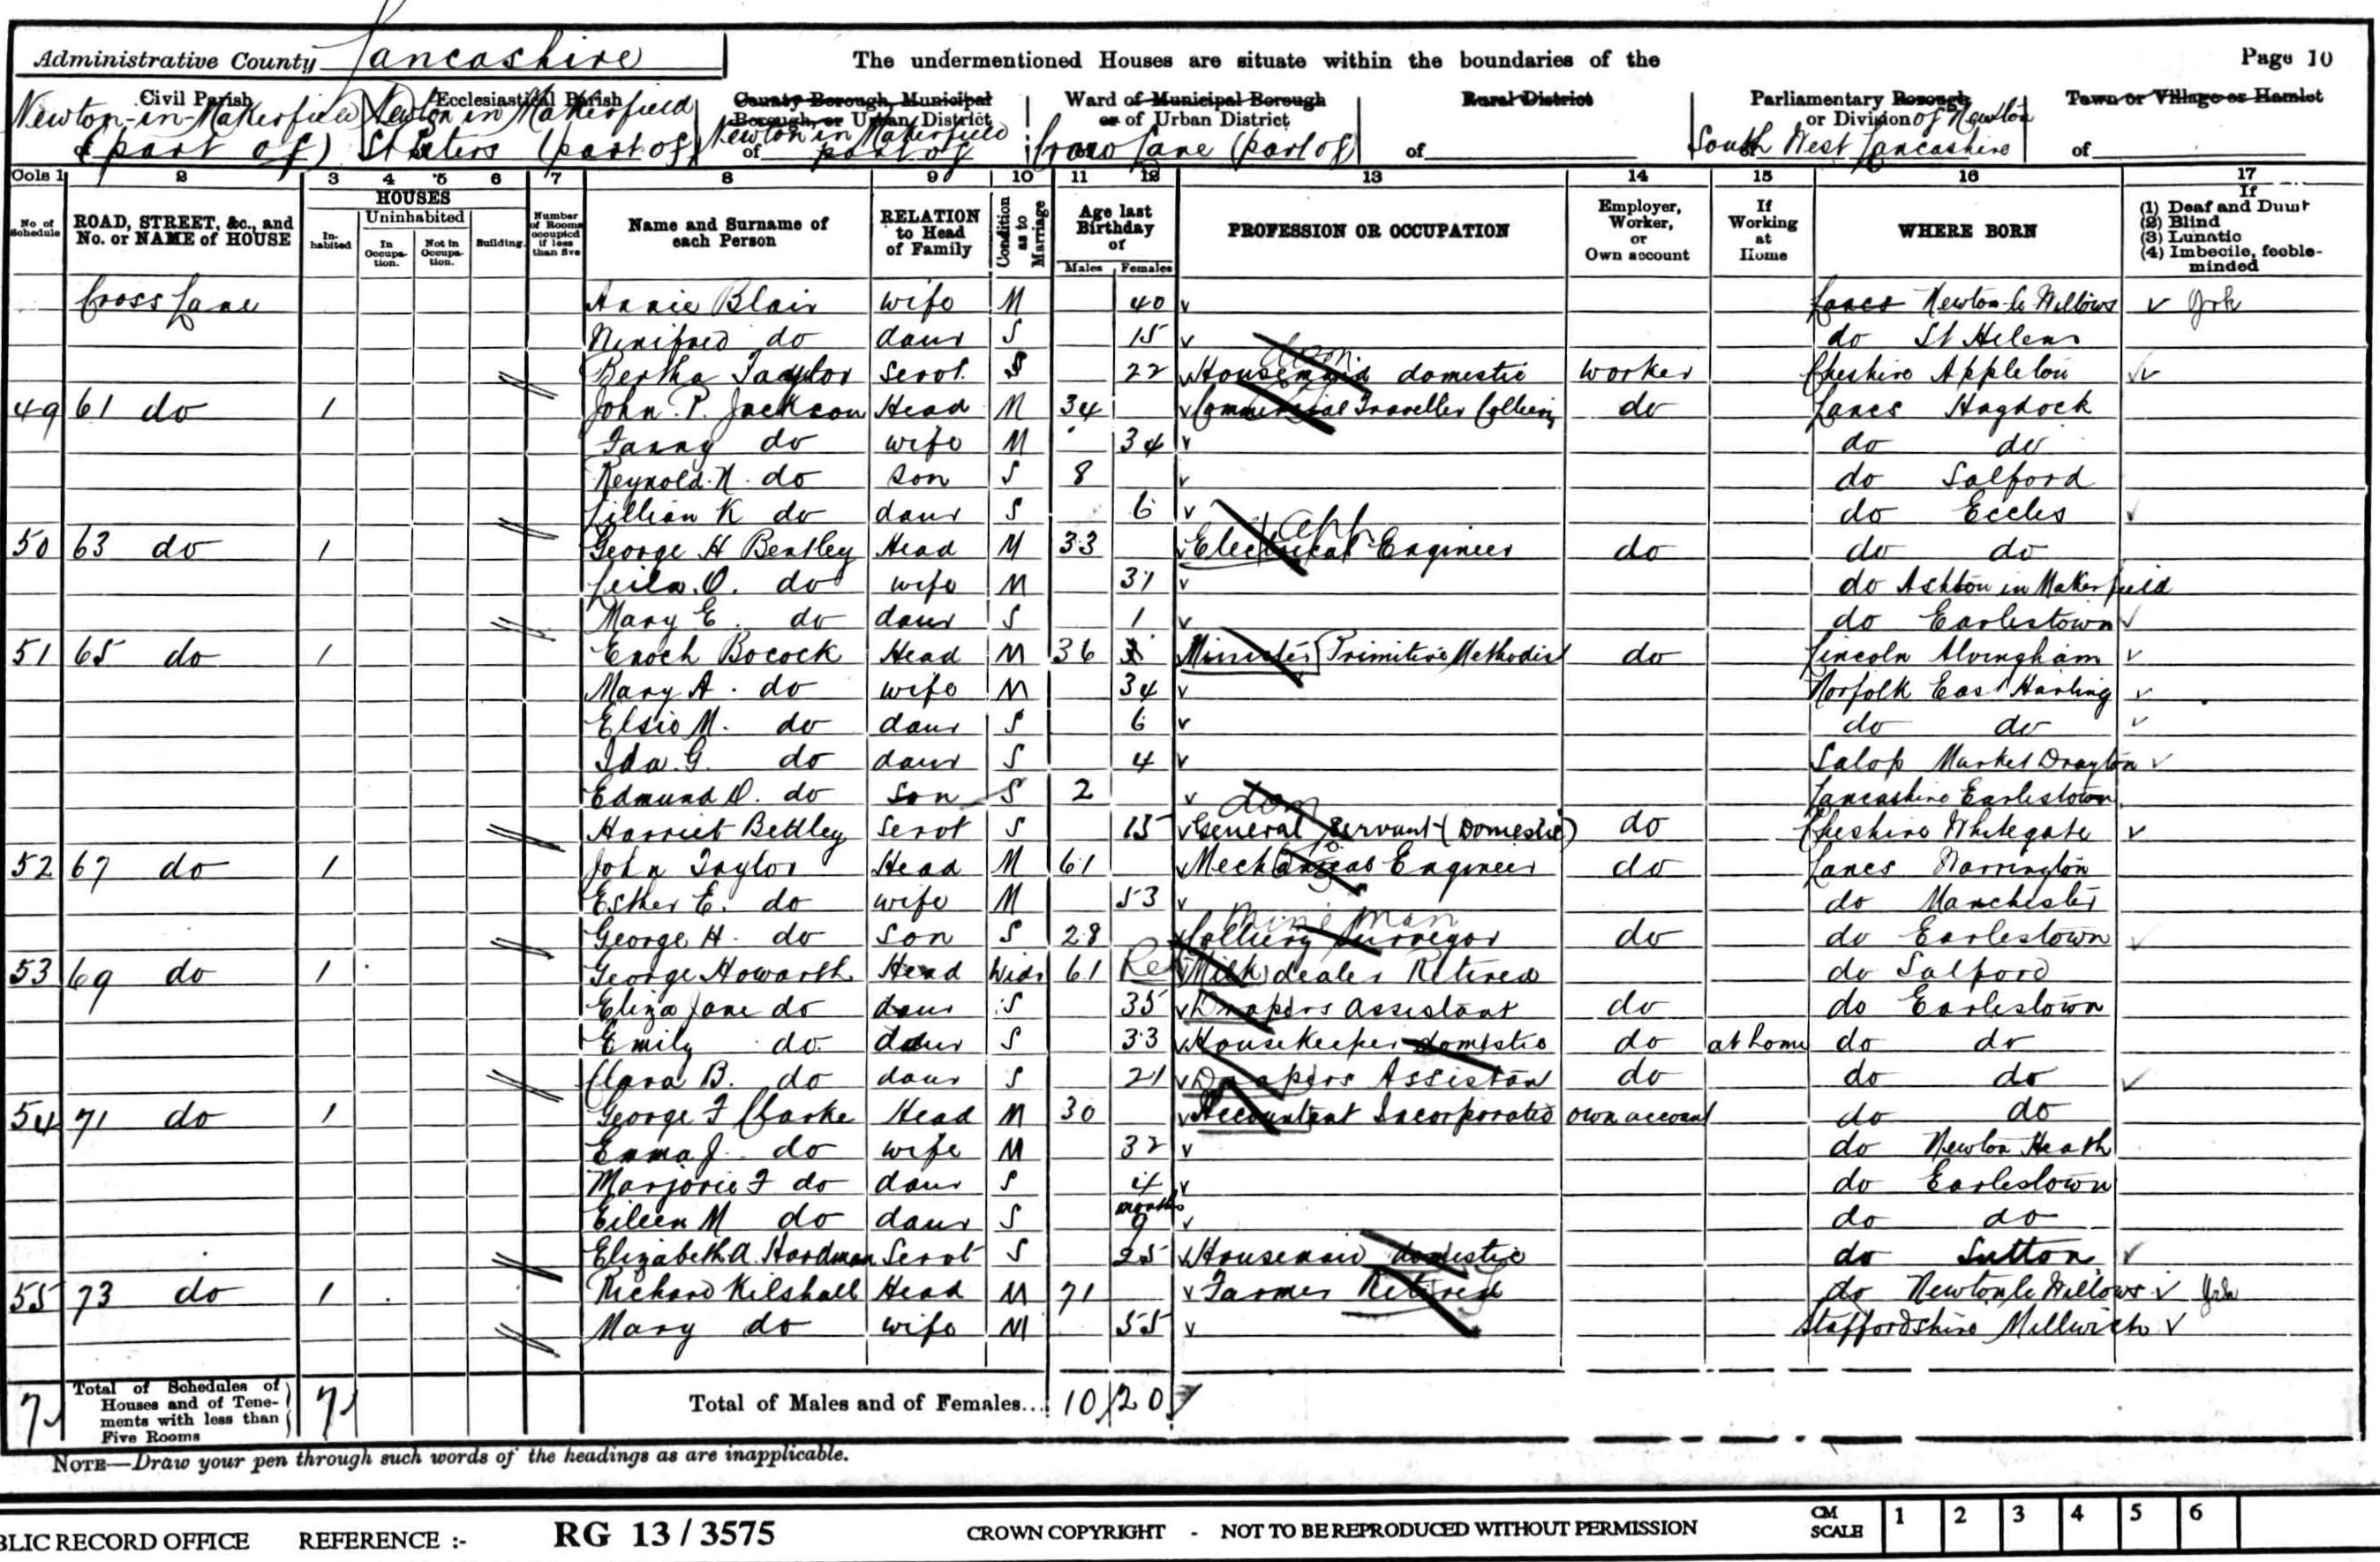 Administrative County Lancashire The undermentioned Houses are situate within the boundaries of the Page 10
Civil Parish Ecclesiastical Parish County Borough, Municipal Borough, or Urban District Ward of Municipal Borough or of Urban District Rural District Parliamentary Borough or Division of Newton Town or Village or Hamlet
Newton-in-Makerfield (part of) Newton in Makerfield St Peters (part of) of Newton in Makerfield part of Cross Lane (part of) of South West Lancashire of
Cols 1 2 3 4 5 6 7 8 9 10 11 12 13 14 15 16 17
No of Schedule ROAD, STREET, &c., and No. or NAME of HOUSE HOUSES In-habited Uninhabited In Occupa-tion. Not in Occupa-tion. Building. Number of Rooms occupied if less than five Name and Surname of each Person RELATION to Head of Family Condition as to Marriage Age last Birthday of Males Females PROFESSION OR OCCUPATION Employer, Worker, or Own account If Working at Home WHERE BORN If (1) Deaf and Dumb (2) Blind (3) Lunatic (4) Imbecile, feeble-minded
Cross Lane Annie Blair wife M 40 Lancs Newton le Willows
Winifred do daur S 15 do St Helens
Bertha Taylor Servt. S 22 Housemaid domestic worker Cheshire Appleton
49 61 do 1 John P. Jackson Head M 34 Commercial Traveller Colliery do Lancs Haydock
Fanny do wife M 34 do do
Reynold N. do son S 8 do Salford
Lillian K do daur S 6 do Eccles
50 63 do 1 George H Bentley Head M 33 Electrical Engineer do do do
Leila O. do wife M 31 do Ashton in Makerfield
Mary E. do daur S 1 do Earlestown
51 65 do 1 Enoch Bocock Head M 36 Minister Primitive Methodist do Lincoln Alvingham
Mary A. do wife M 34 Norfolk East Harling
Elsie M. do daur S 6 do do
Ida G. do daur S 4 Salop Market Drayton
Edmund O. do Son S 2 Lancashire Earlestown
dom
Harriet Bettley Servt S 15 General Servant (Domestic) do Cheshire Whitegate
52 67 do 1 John Taylor Head M 61 Mechanical Engineer do Lancs Warrington
Esther E. do wife M 53 do Manchester
mine man
George H. do Son S 28 Colliery Surveyor do do Earlestown
53 69 do 1 George Howarth Head Widr 61 Ret Milk dealer Retired do Salford
Eliza Jane do daur S 35 Drapers Assistant do do Earlestown
Emily do daur S 33 Housekeeper domestic do at home do do
Clara B. do daur S 21 Drapers Assistan do do do
54 71 do 1 George F Clarke Head M 30 Accountant Incorporated own account do do
Emma J. do wife M 32 do Newton Heath
Marjorie F do daur S 4 do Earlestown
Eileen M do daur S months 9 do do
Elizabeth A. Hardman Servt S 25 Housemaid domestic do Sutton
55 73 do 1 Richard Kilshall Head M 71 Farmer Retired do Newton le Willows
Mary do wife M 55 Staffordshire Millwich
7 Total of Schedules of Houses and of Tene-ments with less than Five Rooms 7 Total of Males and of Females... 10 20
NOTE—Draw your pen through such words of the headings as are inapplicable.
BLIC RECORD OFFICE REFERENCE :- RG 13 / 3575 CROWN COPYRIGHT - NOT TO BE REPRODUCED WITHOUT PERMISSION CM SCALE 1 2 3 4 5 6